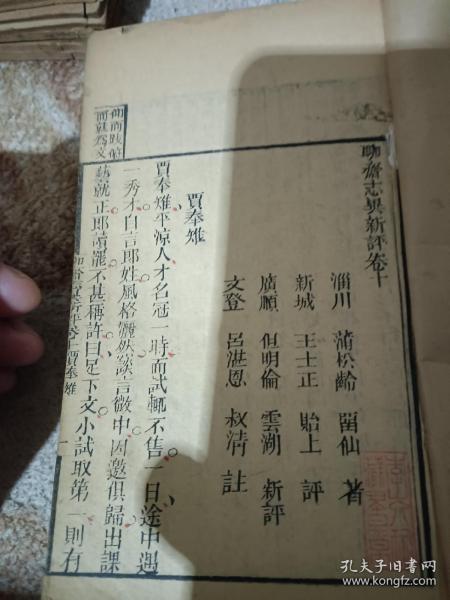 聊齋志異新評卷十
淄川 蒲松齡 留仙 著
新城 王士正 貽上 評
廣順 但明倫 雲湖 新評
文登 呂湛恩 叔清 註
賈奉雉
賈奉雉平涼人才名冠一時而試輒不售一日途中遇
一秀才自言郎姓風格灑然談言微中因邀俱歸出課
藝就正郎讀罷不甚稱許曰足下文小試取第一則有
賈奉雉
孔夫子旧书网
www.kongfz.com